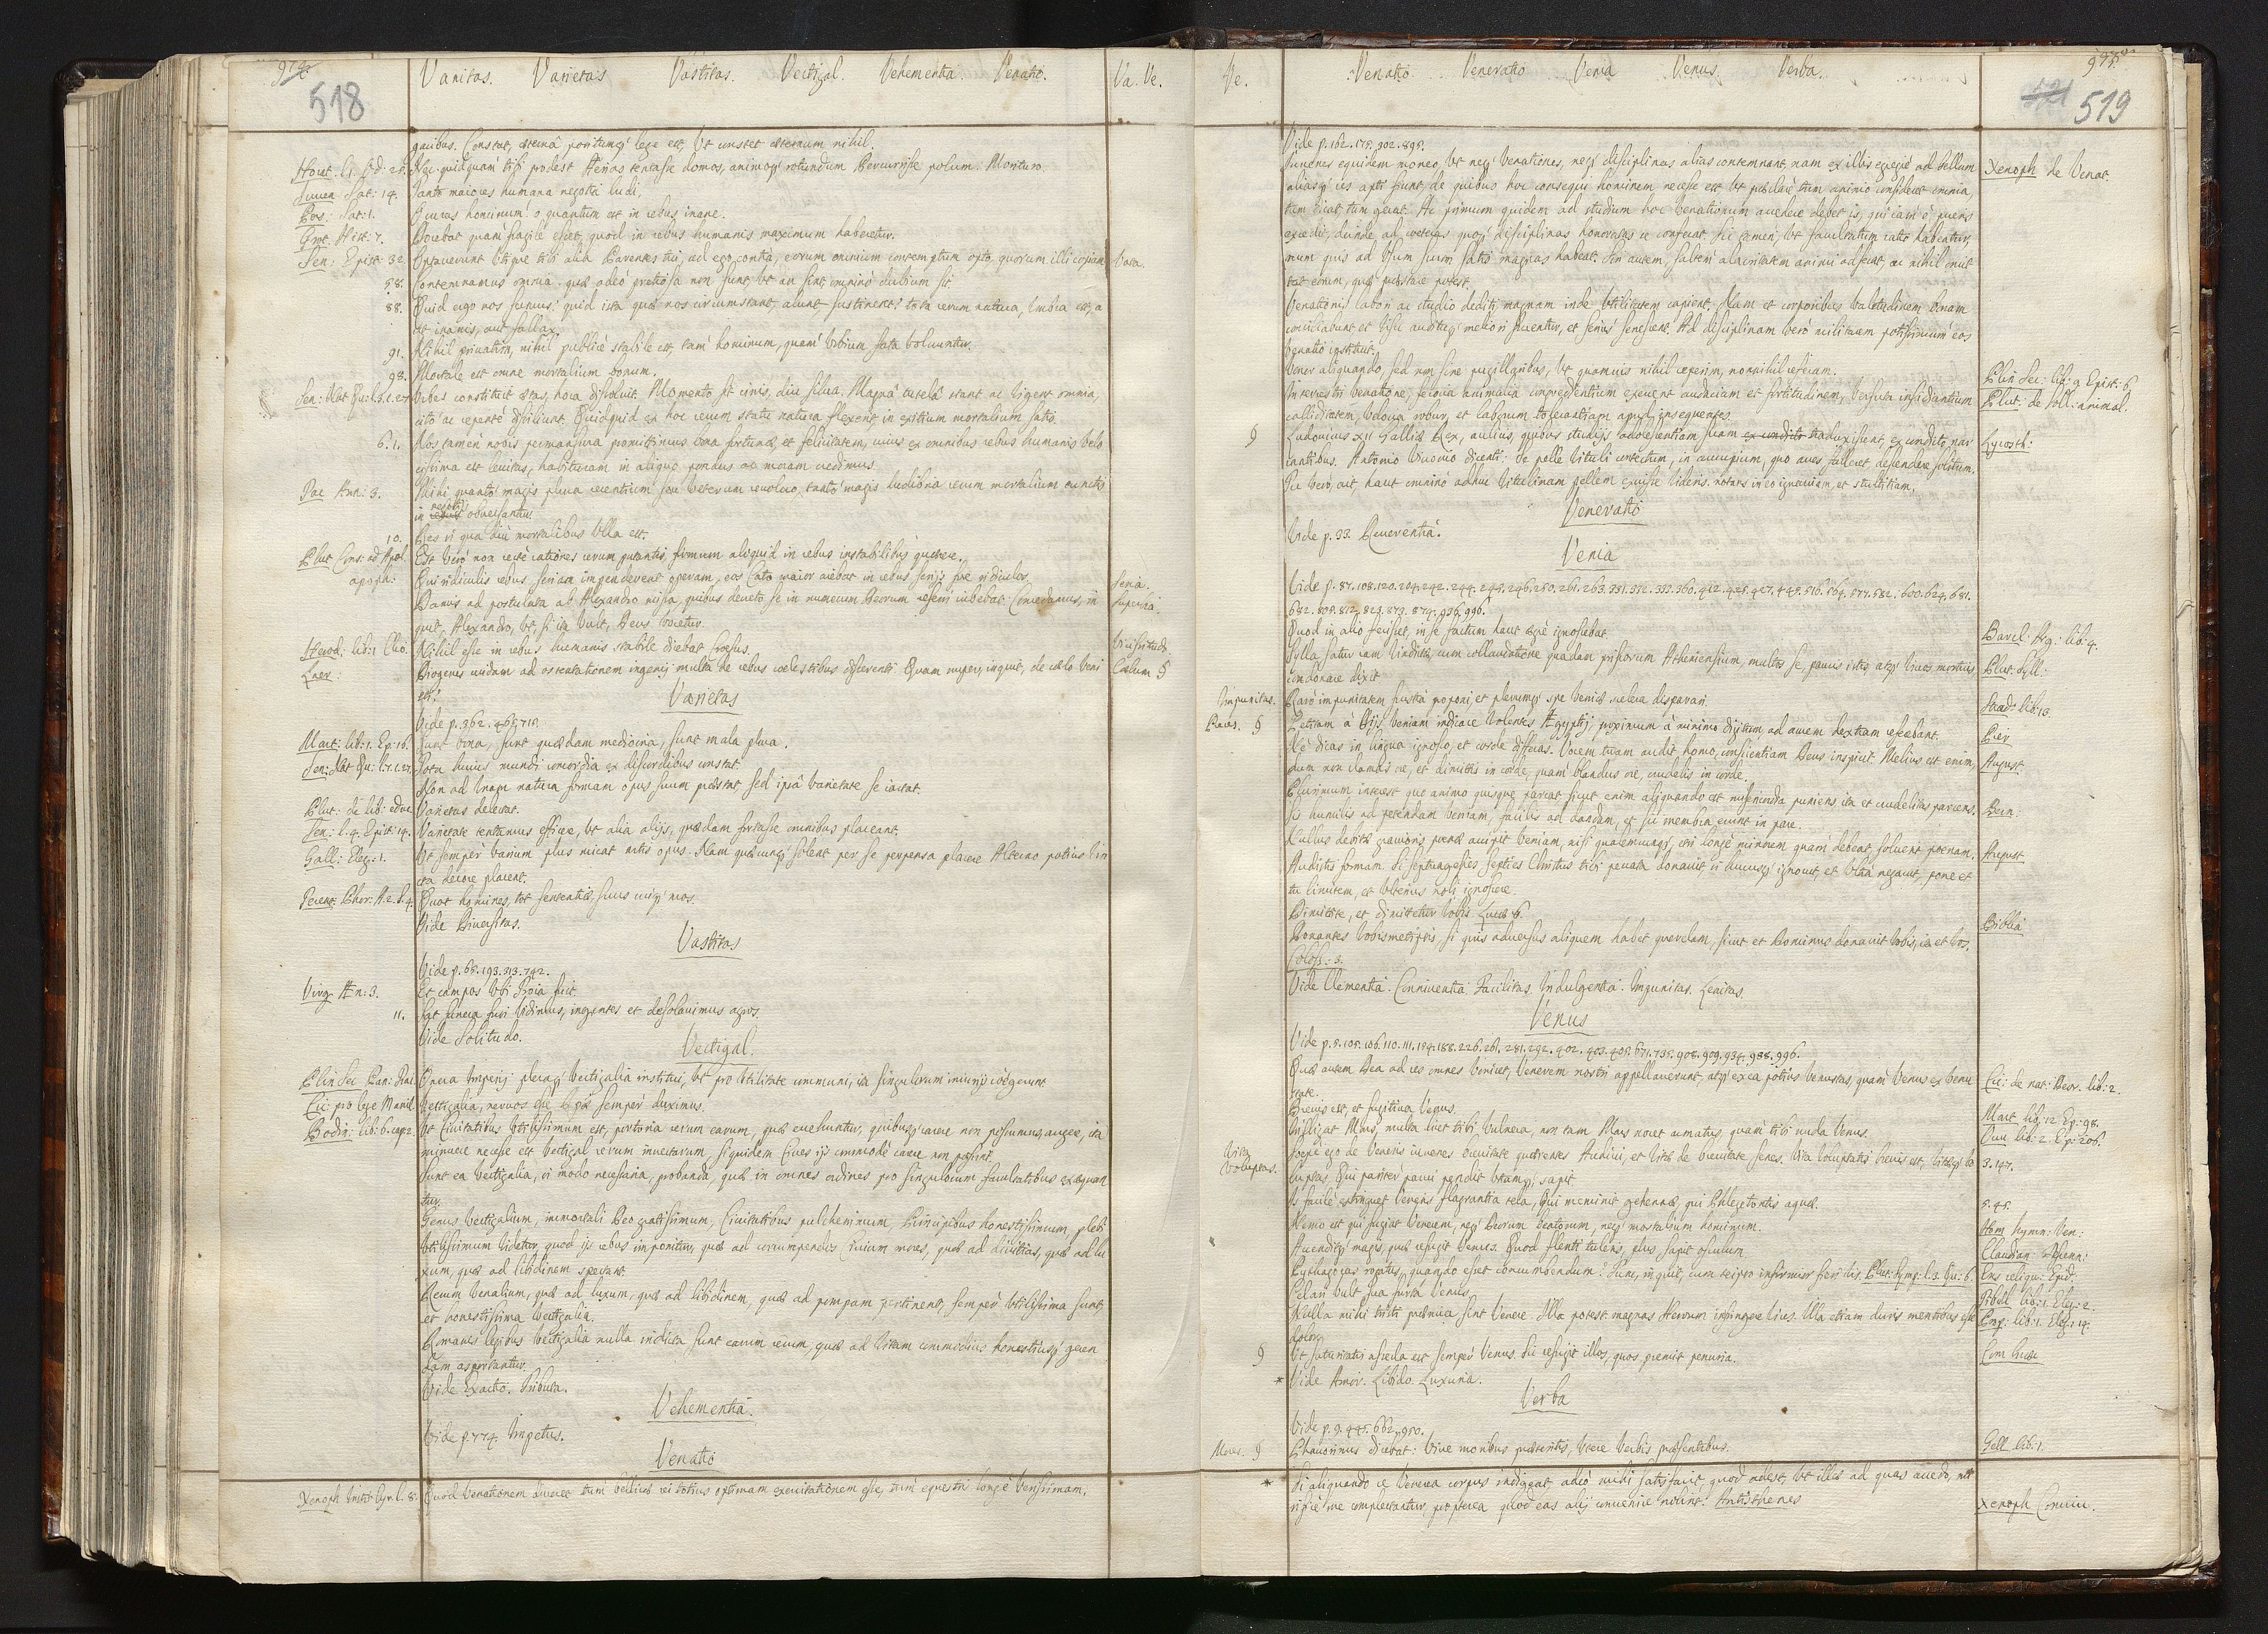 974
518
Vanitas. Varietas Vastitas. Vectigal. Vehementia. Venatio.
Va. Ve.
gacibus. Constat, æternâ positumq' lege est, Ut constet æternum nihil.
Horat: li: 1. Od: 28. Nec quidquam tibi prodest Aerias tentasse domos, animoq' rotundum Percurrisse polum. Morituro
Iuuen. Sat: 14. Tanto maiores humana negotia ludi.
Pers: Sat: 1. O curas hominum! o quantum est in rebus inane.
Hist: 7. Docebat quam facile esset, quod in rebus humanis maximum haberetur.
Sen: Epist: 32. Optauerunt itaque tibi alia Parentes tui, ad ego contra, eorum omnium contemptum opto, quorum illi copiam. Vota.
58. Contemnamus omnia. quæ adeò pretiosa non sunt, ut an sint omninò dubium sit
88. Quid ergo nos sumus? quid ista quæ nos circumstant, alunt, sustinent? tota rerum natura, umbra est, a
ut inanis, aut fallax.
91. Nihil priuatim, nihil publicè stabile est, tam hominum, quam Vrbium fata voluuntur.
98. Mortale est omne mortalium bonum.
Sen: Nat Qu: l. 3. c. 27. Urbes constituit ætas, hora dissoluit. Momento fit cinis, diu silua. Magnâ tutelâ stant ac vigent omnia,
citò ac repentè dissiliunt. Quidquid ex hoc rerum statu natura flexerit in exitium mortalium satis.
6. 1. Nos tamen nobis permansura promittimus bona fortunæ, et felicitatem, cuius ex omnibus rebus humanis velo
cissima est leuitas, habituram in aliquo pondus ac moram credimus.
Tac Ann: 3. Mihi quantò magis plura recentium seu veterum reuoluo, tantò magis ludibria rerum mortalium cunctis
in negotijs obuersantur.
10. Res si qua diu mortalibus ulla est.
Plut Cons: ad Apol. Est verò non rectè rationes rerum putantis, firmum aliquid in rebus instabilibus quærere.
apoph: Qui ridiculis rebus, seriam impenderent operam, eos Cato maior aiebat in rebus serijs fore ridiculos. Seria.
Damis ad postulata ab Alexandro missa, quibus decreto se in numerum Deorum referri iubebat. Concedamus, in Superbia.
quit, Alexandro, ut, si ita vult, Deus vocetur.
Herod: lib: 1. Clio. Nihil esse in rebus humanis stabile dicebat Croesus. Vicissitudo.
Laer: Diogenes cuidam ad ostentationem ingenij multa de rebus coelestibus disserenti. Quam nuper, inquit, de coelo veni Coelum §
sti?
Varietas
Vide p. 362. 461. 715.
Mart: lib: 1. Ep: 16. Sunt bona, sunt quædam mediocria, sunt mala plura.
Sen: Nat Qu: l. 7. c. 27. Tota huius mundi concordia ex discordibus constat.
Non ad unam natura formam opus suum præstat, sed ipsâ varietate se iactat.
Plut: de lib: educ Varietas delectat.
Sen: l. 4. Epist: 14. Varietate tentamus efficere, ut alia alijs, quædam fortasse omnibus placeant.
Gall: Eleg: 1. Ut semper varium plus micat artis opus. Nam quæcunq' solent per se perpensa placere Alterno potius iun
cta decore placent.
Terent: Phor: A. 2. S. 4. Quot homines, tot sententiæ, suus cuiq' mos.
Vide Diuersitas.
Vastitas
Vide p. 65. 193. 313. 742.
Virg Æn: 3. Et campos ubi Troia fuit.
11. Sat funera fusi vidimus, ingentes et desolauimus agros.
Vide Solitudo.
Vectigal.
Plin Sec Pan: Trai. Onera Imperij pleraq' vectigalia institui, ut pro utilitate communi, ita singulorum iniurijs coëgerunt.
Cic: pro lege Manil. Vectigalia, neruos esse Rpæ semper duximus.
Bodin: lib: 6. cap 2. Ut Ciuitatibus utilissimum est, portoria rerum earum, quæ euehuntur, quibusq' carere non possumus, augere, ita
minuere necesse est vectigal rerum inuectarum, siquidem Ciues ijs commodè carere non possint.
Sunt ea vectigalia, si modo necessaria, probanda, quæ in omnes ordines pro singulorum facultatibus exæquan
tur.
Genus vectigalium, immortali Deo gratissimum, Ciuitatibus pulcherrimum, Principibus honestissimum, plebi
utilissimum videtur, quod ijs rebus imponitur, quæ ad corrumpendos Ciuium mores, quæ ad diuitias, quæ ad lu
xum, quæ ad libidinem spectant.
Rerum venalium, quæ ad luxum, quæ ad libidinem, quæ ad pompam pertinent, semper utilissima sunt,
et honestissima vectigalia.
Romanis legibus vectigalia nulla indicta sunt earum rerum, quæ ad vitam commodius honestiusq' geren
dam asportantur.
Vide Exactio. Tributa.
Vehementia.
Vide p. 774. Impetus.
Venatio
Xenoph Instit Cyr. l. 8. Quod venationem diceret tum bellicæ rei totius optimam exercitationem esse, tum equestris longè verissimam.
975
521 519
Ve.
Venatio Veneratio Venia Venus Verba.
Vide p. 162. 175. 302. 895.
Iuuenes equidem moneo, ut neq' venationes, neq' disciplinas alias contemnant, nam ex illis egregiè ad bellum Xenoph de Venat.
aliasq' res apti fiunt, de quibus hoc consequi hominem necesse est ut præclarè tum animo consideret omnia,
tum dicat, tum gerat. Ac primum quidem ad studium hoc venationum accedere debet is, qui iam è pueris
excedit, deinde ad ceteras quoq' disciplinas honoratas se conferat, sic tamen, ut facultatum ratio habeatur,
num quis ad usum suum satis magnas habeat. Sin autem, saltem alacritatem animi adferat, ac nihil omit
tat eorum, quæ præstare potest.
Venationis labori ac studio dediti, magnam inde utilitatem capient. Nam et corporibus valetudinem bonam
conciliabunt, et visu audituq' meliori fruentur, et seriùs senescent. Ad disciplinam verò militarem potissimùm eos
venatio instituit.
Venor aliquando, sed non sine pugillaribus, ut quamuis nihil ceperim, nonnihil referam. Plin Sec: lib: 9 Epist: 6
In terrestri venatione, ferocia animalia congredientium exercent audaciam et fortitudinem, versuta insidiantium Plut: de soll: animal.
calliditatem, velocia robur, et laborum tolerantiam apud insequentes.
§ Ludouicus XII Galliæ Rex, aulicis, quibus studijs adolescentiam suam traduxissent, ex condito nar Lycosth:
rantibus. Antonio dicenti. se pelle vituli contectum, in aucupium, quo aues falleret, descendere solitum.
Tu verò, ait, haut omnino adhuc vitulinam pellem exuisse videris. notans in eo ignauiam, et stultitiam.
Veneratio
Vide p. 33. Reuerentia.
Venia
Vide p. 87. 108. 120. 204. 242. 244. 245. 246. 250. 261. 263. 331. 332. 333. 360. 412. 425. 427. 445. 516. 564. 577. 582. 600. 624. 681.
682. 805. 812. 823. 873. 874. 936. 996.
Quod in alio feruisset, in se factum haut ægrè ignoscebat. Barcl: Arg: lib: 4.
Sylla satur iam vindictæ, cum collaudatione quadam priscorum Atheniensium, multos se, paucis istis, atq' viuos mortuis Plut: Syll:
condonare dixit
Impunitas. Raro impunitatem frustra proponi, et plerumq' spe veniæ scelera disparari. Strad: lib: 10
Paues. § Petitam à Dijs veniam indicare volentes Ægyptij, proximum à minimo digitum, ad aurem dextram referebant. Pier
Ne dicas in lingua ignosco, et corde differas. Vocem tuam audit homo, conscientiam Deus inspicit. Melius est enim, August
dum non clamas ore, et dimittis in corde, quam blandus ore, crudelis in corde.
Plurimum interest quo animo quisque parcat sicut enim aliquando est misericordia puniens ita et crudelitas parcens.
Sis humilis ad petendam veniam, facilis ad dandam, et sic membra erunt in pace. Bern:
Nullus debitæ grauioris poenæ accipit veniam, nisi qualemcunq', etsi longè minorem quam debeat, soluerit poenam. August
Audistis formam. Si septuagesies septies Christus tibi peccata donauit, si hucusq' ignouit, et ultra negauit, pone et
tu limitem, et ulterius noli ignoscere.
Dimittite, et dimittetur vobis. Lucæ 6. Biblia
Donantes vobismetipsis, si quis aduersus aliquem habet querelam, sicut et Dominus donauit vobis, ita et vos.
Coloss: 3.
Vide Clementia. Conniuentia. Facilitas. Indulgentia. Impunitas. Lenitas.
Venus
Vide p. 5. 105. 106. 110. 111. 154. 188. 226. 261. 281. 292. 402. 403. 405. 671. 735. 908. 909. 934. 988. 996.
Quæ autem Dea ad res omnes veniret, Venerem nostri appellauerunt, atq' ex ea potius venustas, quàm Venus ex venu Cic: de nat: Deor. lib: 2.
state.
Breuis est, et fugitiua Venus. Mart. lib: 12 Ep: 98.
Infligat Mars, multa licet tibi vulnera, non tam Mars nocet armatus, quam tibi nuda Venus. Ouu lib: 2. Ep: 206.
Vita Voluptas. Soepe ego de Veneris iuuenes breuitate querentes Audiui, et Vitæ de breuitate senes. Vita voluptatis breuis est, vitæq' vo 3. 147.
luptas. Qui pariter parui pendit utramq', sapit
Is facilè extinguet Veneris flagrantia tela, Qui meminit gehennæ, qui Phlegetontis aquæ. 5. 45.
Nemo est qui fugiat Venerem, neq' Deorum beatorum, neq' mortalium hominum. Hom hymn: Ven:
Accenditq' magis, quæ refugit Venus. Quod flenti tuleris, plus sapit osculum. Claudian:
Pythagoras rogatus, quando esset concumbendum? Tum, inquit, cum teipso infirmior fieri vis. Plut: Symp: l. 3. Qu: 6.
Celari vult sua furta Venus. Tibull lib: 1. Eleg: 2.
Nulla mihi tristi præmia sint Venere. Illa potest magnas Heroum infringere vires. Illa etiam duris mentibus esse Prop: lib: 1. Eleg: 14.
dolor.
§ Ut saturitatis asecla est semper Venus, sic refugit illos, quos premit penuria.
* Vide Amor. Libido. Luxuria.
Verba
Vide p. 9. 445. 662. 950.
Mores. § Phauorinus dicebat: Viue moribus præteritis, utere verbis præsentibus. Gell lib: 1.
* Si aliquando re Venerea corpus indigeat, adeò mihi satisfacit, quod adest, ut illæ ad quas accedo, mi
rificè me complectantur, propterea quod eas alij conuenire nolint. Antisthenes Xenoph Conuiu.